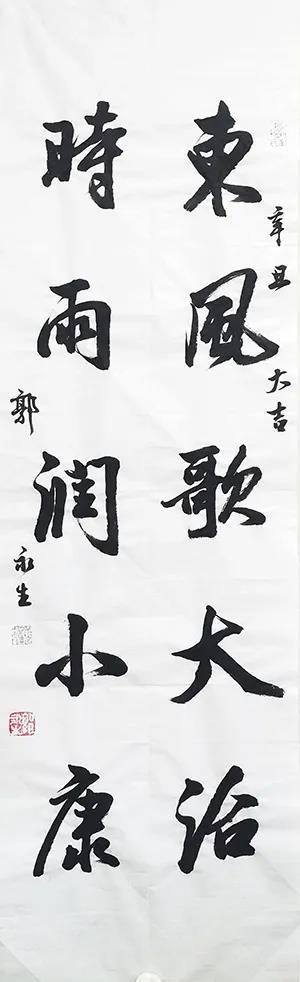 辛丑大吉
東風歌大治
時雨潤小康
郭永生